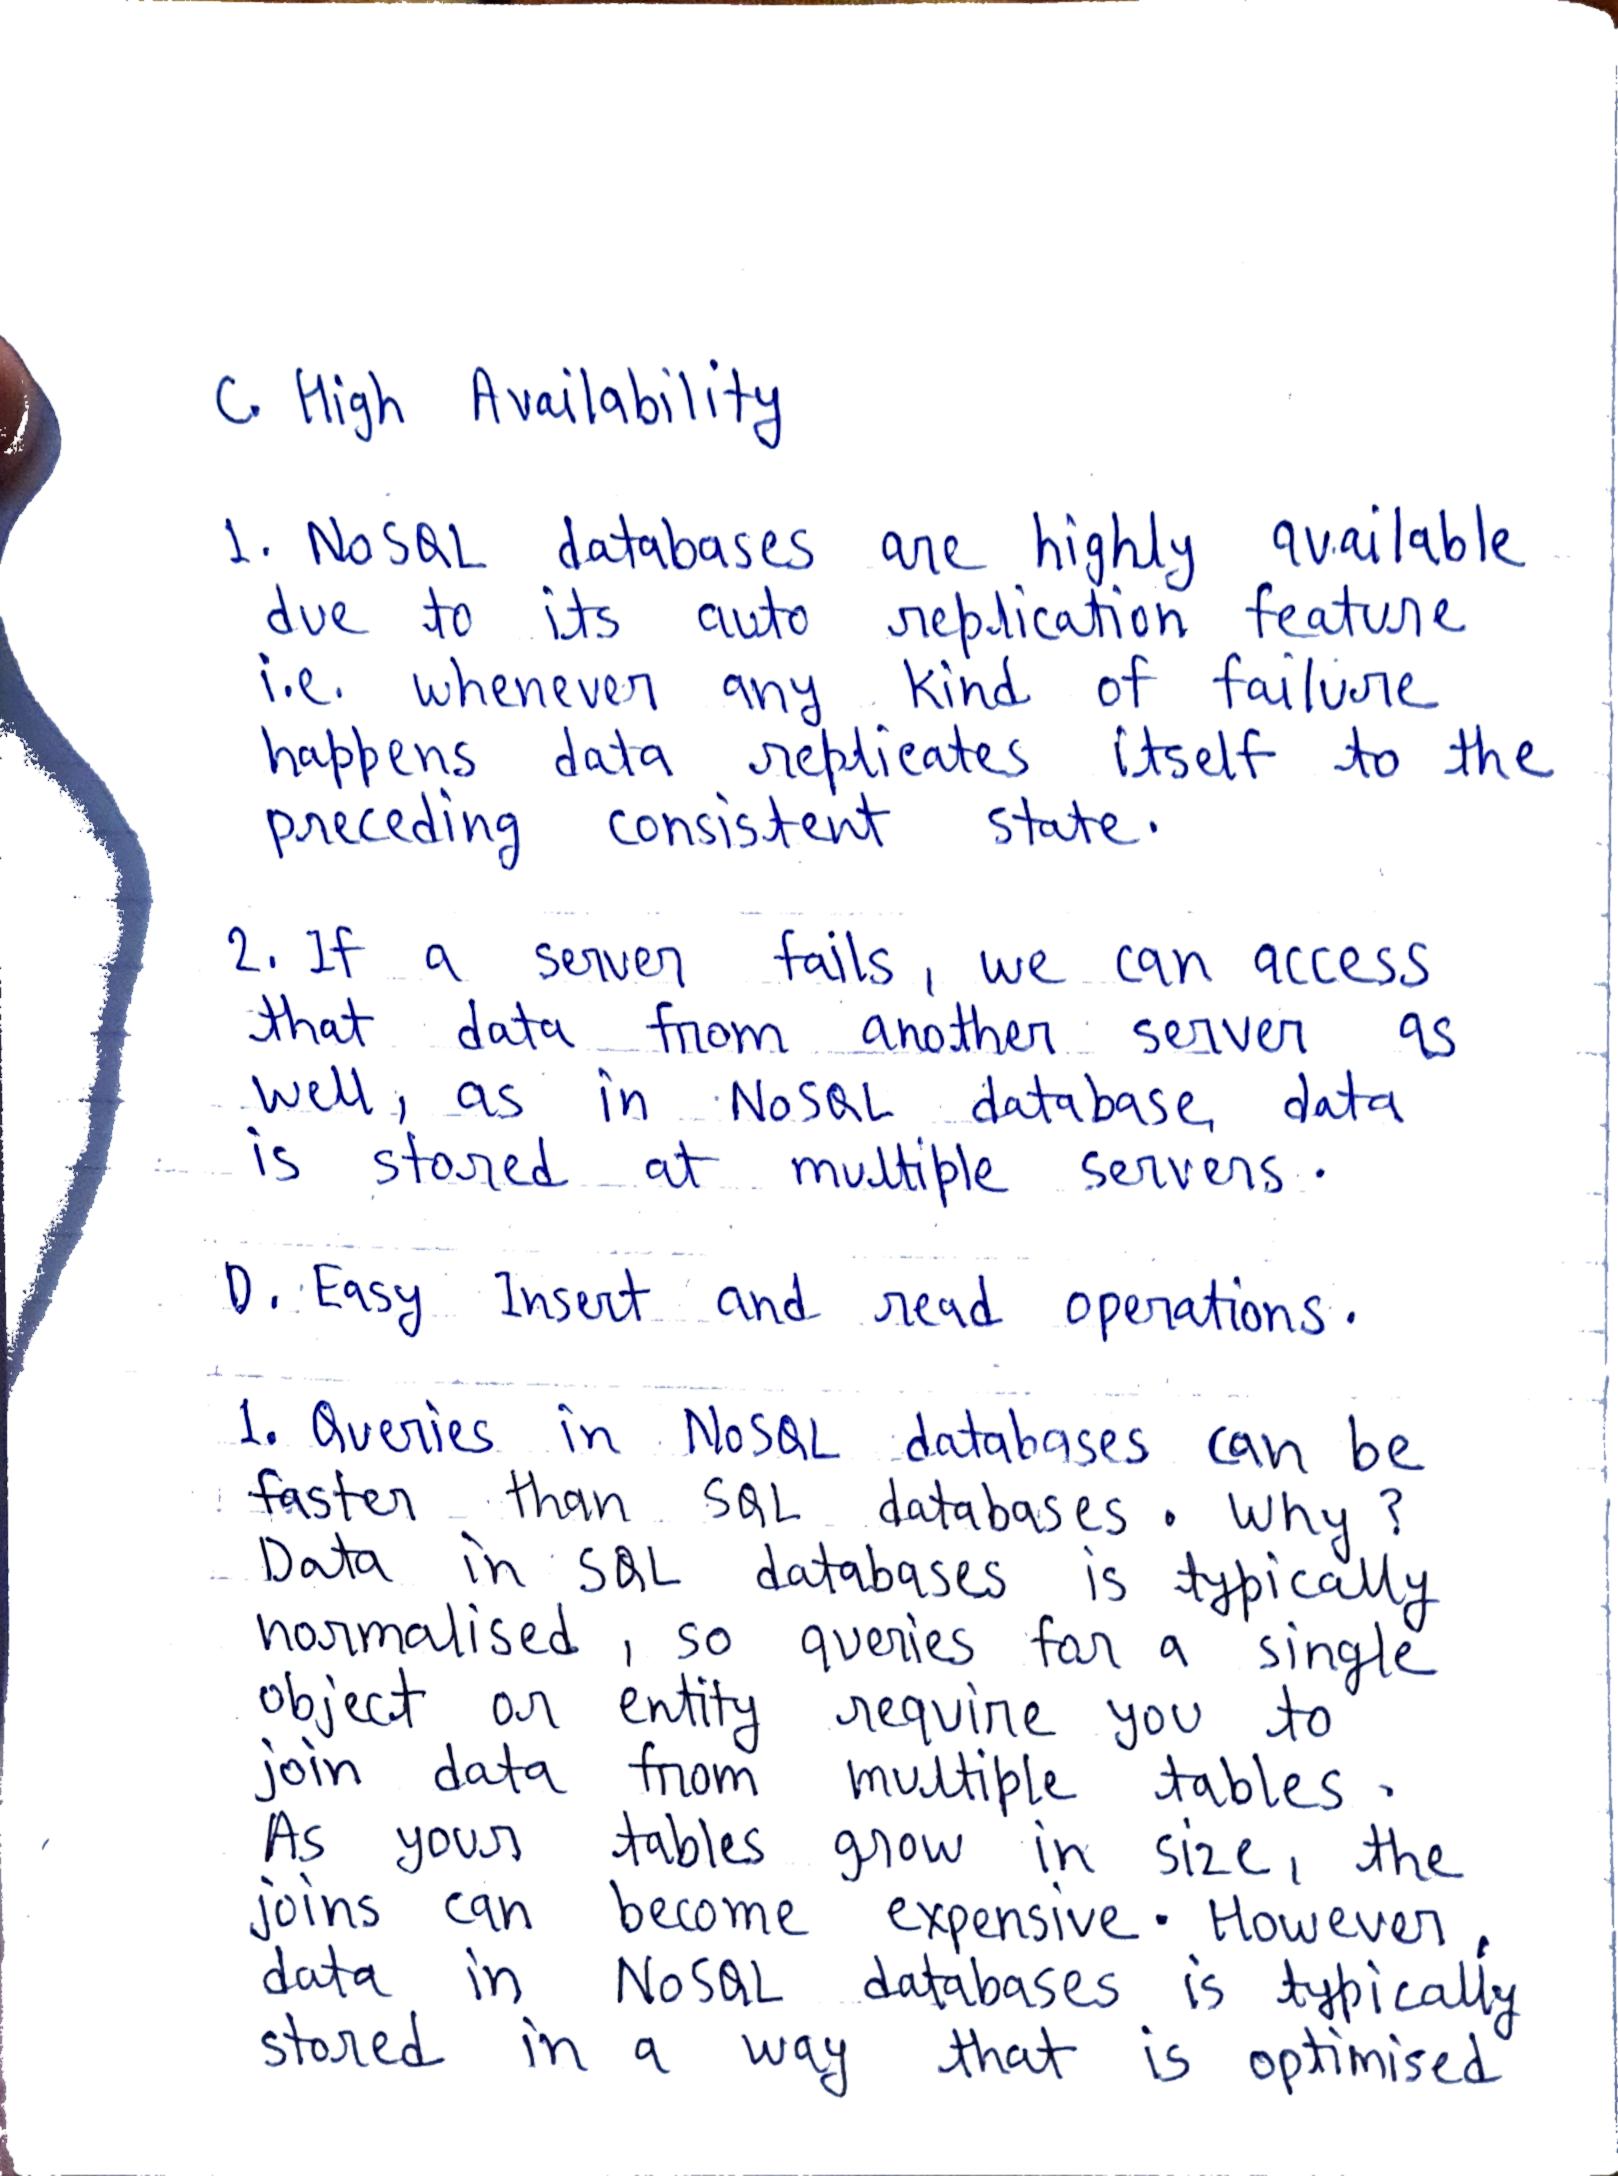 C. High Availability
1. NoSQL databases are highly available
due to its auto replication feature
i.e. whenever any kind of failure
happens data replicates itself to the
preceding consistent state.
2. If a server fails, we can access
that data from another server as
well, as in NoSQL database, data
is stored at multiple servers.
D. Easy Insert and read operations.
1. Queries in NoSQL databases can be
faster than SQL databases. Why?
Data in SQL databases is typically
normalised, so queries for a single
object or entity require you to
join data from multiple tables.
As your tables grow in size, the
joins can become expensive. However,
data in NoSQL databases is typically
stored in a way that is optimised